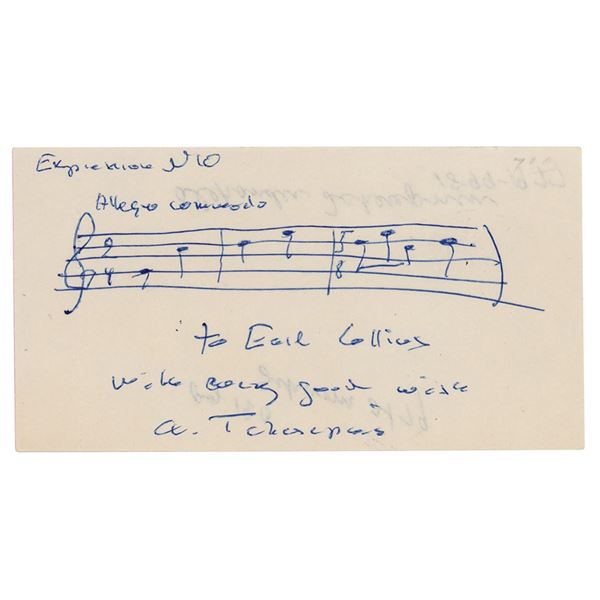 Expression N10
Allegro commodo
2
4
5
8
to Earl Collins
with every good wish
A. Tcherepnin